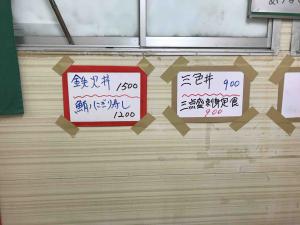 鉄火丼 1500
鮪にぎり寿し
1200
三色丼 900
三点盛刺身定食
900